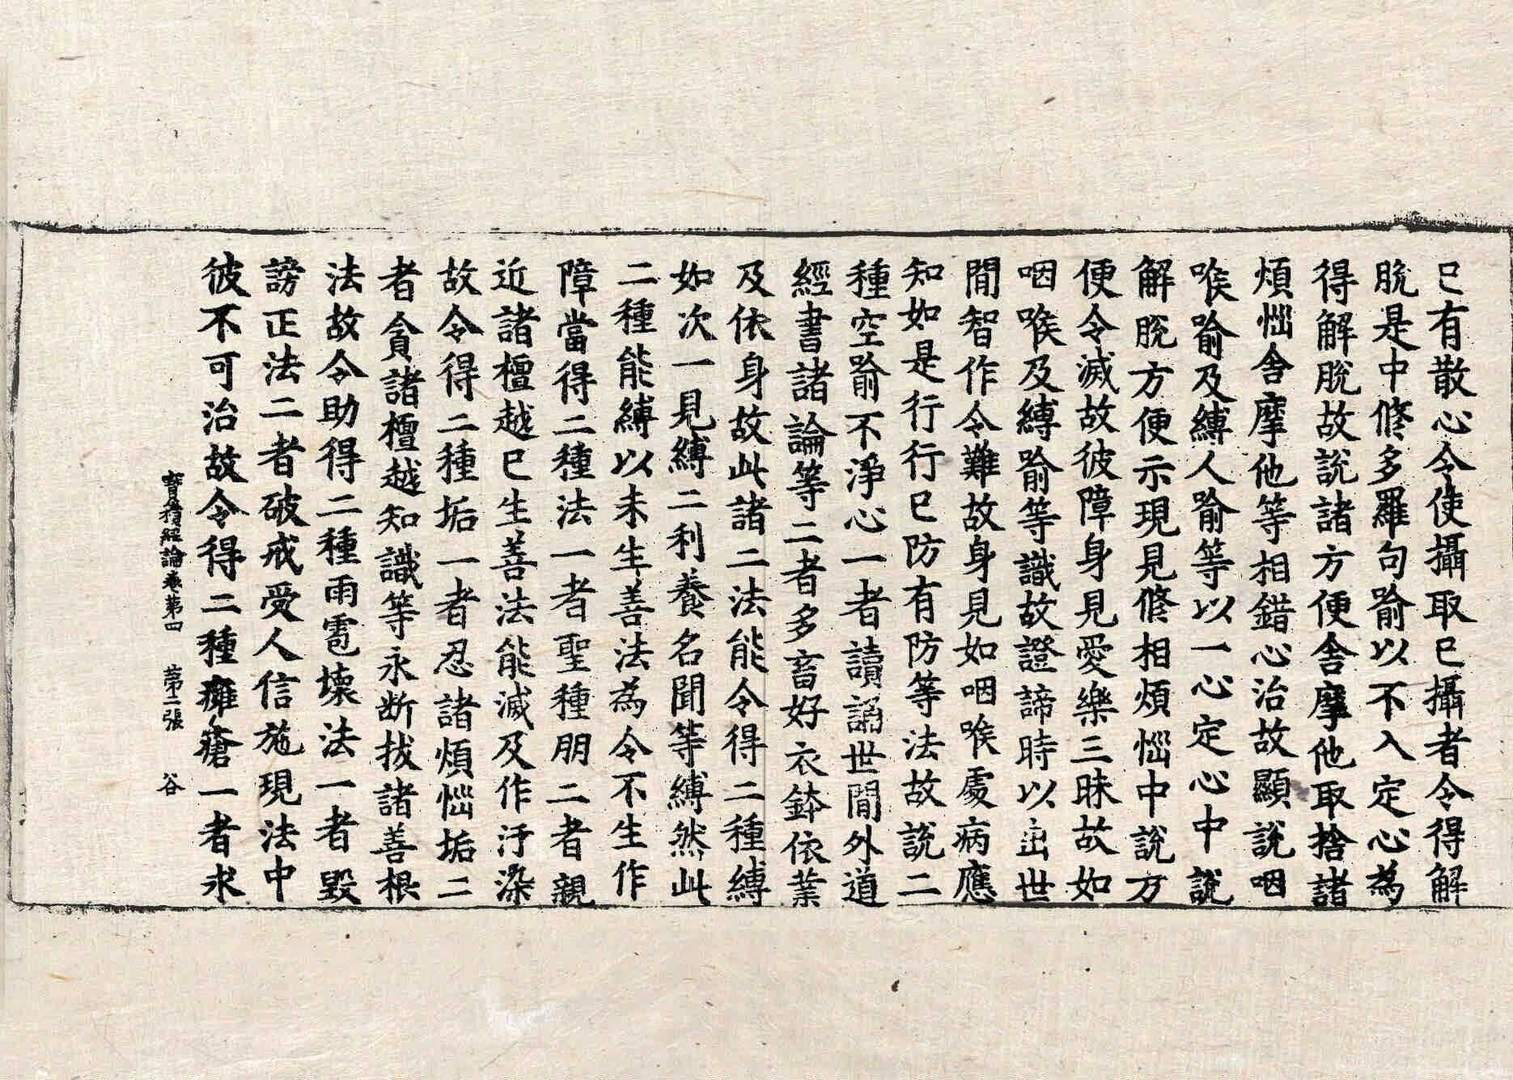 已有散心令使攝取已攝者令得解
脫是中修多羅句喻以不入定心為
得解脫故說諸方便舍摩他取捨諸
煩惱舍摩他等相錯心治故顯說咽
喉喻及縛人喻等以一心定心中說
解脫方便示現見修相煩惱中說方
便令滅故彼障身見愛樂三昧故如
咽喉及縛喻等識故證諦時以出世
間智作令難故身見如咽喉處病應
知如是行行已防有防等法故說二
種空喻不淨心一者讀誦世間外道
經書諸論等二者多畜好衣鉢依業
及依身故此諸二法能令得二種縛
如次一見縛二利養名聞等縛然此
二種能縛以未生善法為令不生作
障當得二種法一者聖種朋二者親
近諸檀越已生善法能滅及作汙染
故令得二種垢一者忍諸煩惱垢二
者貪諸檀越知識等永断拔諸善根
法故令助得二種雨雹壞法一者毀
謗正法二者破戒受人信施現法中
彼不可治故令得二種癰瘡一者求
寶積經論卷第四 第二張 谷